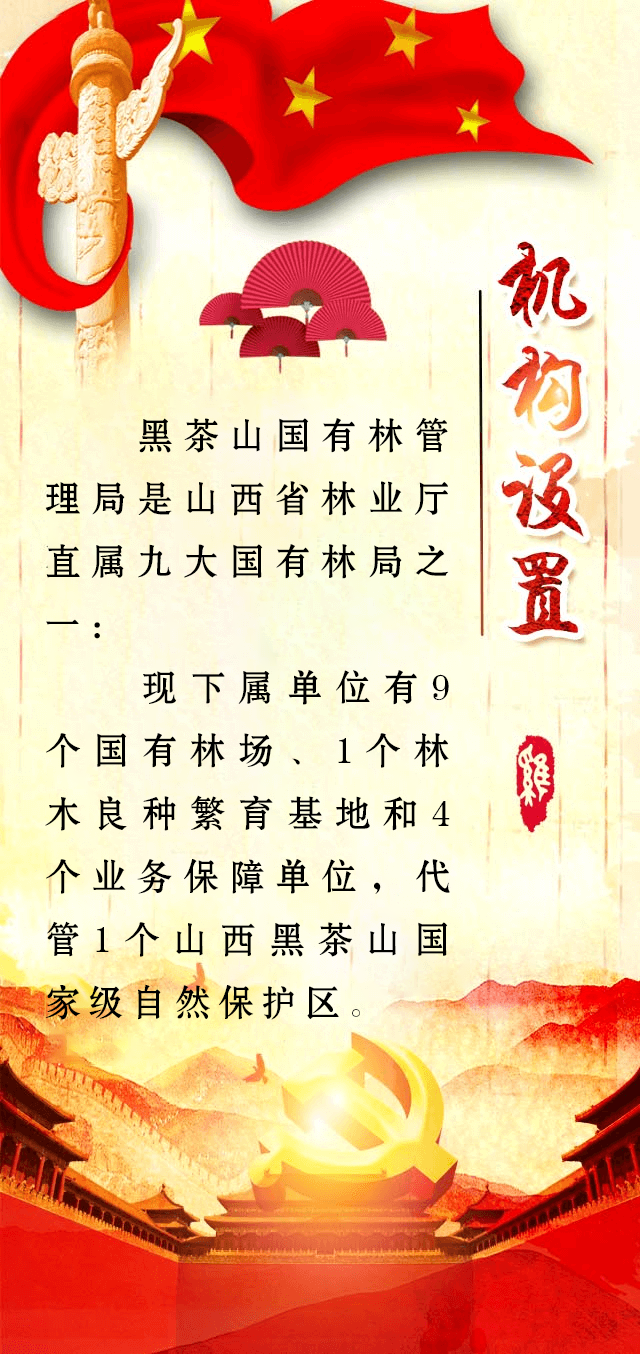 机构设置
黑茶山国有林管
理局是山西省林业厅
直属九大国有林局之
一：
现下属单位有9
个国有林场、1个林
木良种繁育基地和4
个业务保障单位，代
管1个山西黑茶山国
家级自然保护区。